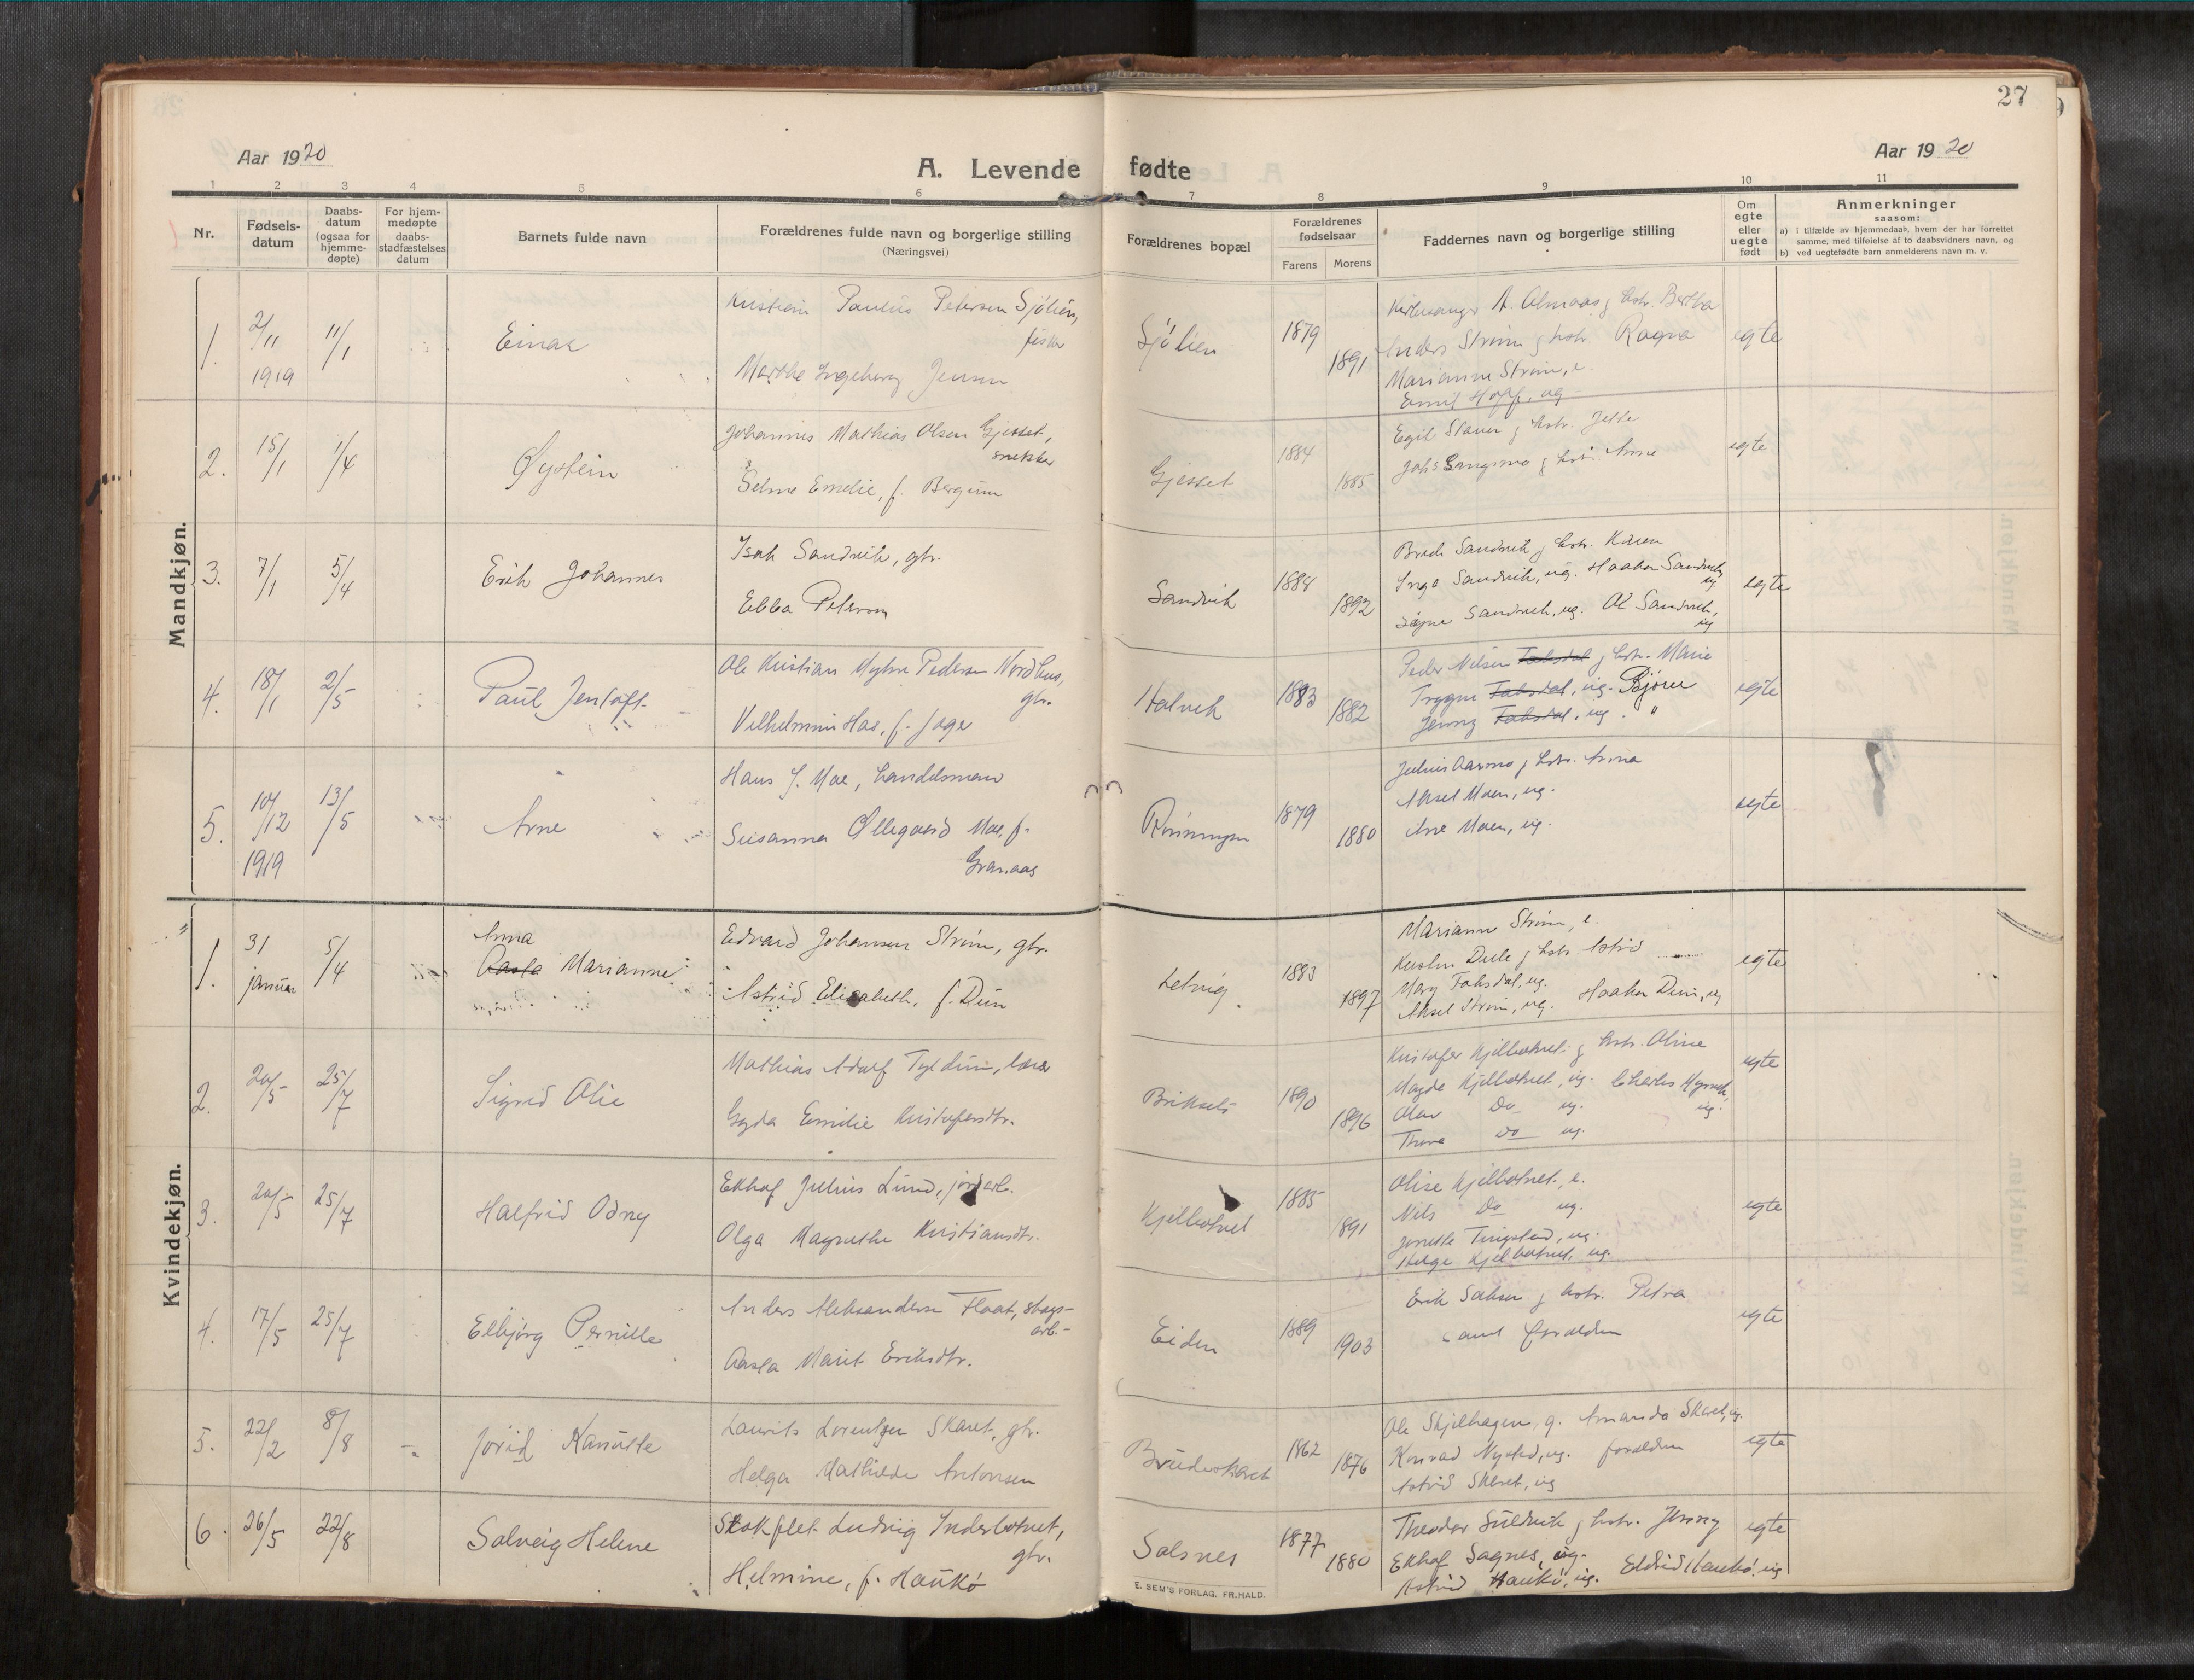 27
Aar 1920
A. Levende fødte
Aar 1920
1 2 3 4 5 6 7 8 9 10 11
Nr.
Fødsels-
datum
Daabs-
datum
(ogsaa for
hjemme-
døpte)
For hjem-
medøpte
daabs-
stadfæstelses
datum
Barnets fulde navn
Forældrenes fulde navn og borgerlige stilling
(Næringsvei)
Forældrenes bopæl
Forældrenes
fødselsaar
Farens Morens
Faddernes navn og borgerlige stilling
Om
egte
eller
uegte
født
Anmerkninger
saasom:
a) i tilfælde av hjemmedaab, hvem der har forrettet
samme, med tilføielse af to daabsvidners navn, og
b) ved uegtefødte barn anmelderens navn m. v.
Mandkjøn.
1.
2/11
1919
11/1
Einar
Kristian Paulus Petersen Sjølien,
fisker
Marthe Ingeborg Jensen
Sjølien
1879
1891
Kirkesanger A. Almaas j hstr. Bertha
Anders Strøm j hstr. Ragna
Marianne Strøm, e.
Emil Hopf, ug.
egte
2.
15/1
1/4
Øystein
Johannes Mathias Olsen Gjesset,
snekker
Selme Emelie, f. Bergum
Gjesset
1884
1885
Egil j hstr. Jette
j hstr. Anne
egte
3.
7/1
5/4
Erik Johannes
Isak Sandvik, gbr.
Ebba Peterson
Sandvik
1884
1892
Brede Sandvik j hstr. Karen
Inga Sandvik, ug. Haakon Sandvik,
ug.
Signe Sandvik, ug. Ole Sandvik,
ug
egte
4.
18/1
2/5
Paul Jentoft
Ole Kristian Pedersen Nordhus,
gbr.
Vilhelmine Has, f. Jager
Halvik
1883
1882
Peder Nilsen Faksdal j hstr. Marie
Trygve Faksdal, ug. Bjører
Jenny Faksdal, ug. "
egte
5.
10/12
1919
13/5
Arne
Hans J. Moe, handelsmann
Susanna Øllegaard Moe, f.
Granaas
Rønningen
1879
1880
Julius Aarmo j hstr. Anna
Aksel Moen, ug.
Moen, ug.
egte
Kvindekjøn.
1.
31
januar
5/4
Anna
Aasta Marianne
Edvard Johansen Strøm, gbr.
Astrid Elisabeth, f. Dun
Letvig
1883
1897
Marianne Strøm, e.
j hstr. Astrid
Mary Faksdal, ug.
Aksel Strøm, ug. Haakon Dun, ug
egte
2.
20/5
25/7
Sigrid Olie
Mathias Adolf Tyldum, lærer
Gyda Emilie Kristofersdtr.
1890
1896
Kristofer Kjelbotnet j hstr. Oline
Magda Kjelbotnet, ug. Charles
ug.
Olav Do ug.
Thora do ug.
egte
3.
20/5
25/7
Halfrid Odny
Ekhof Julius Lund, jordarb.
Olga Magnethe Kristiansdtr.
Kjelbotnet
1885
1891
Olise Kjelbotnet, e.
Nils Do ug.
Jenette Tingstad, ug.
Helge Kjelbotnet, ug.
egte
4.
17/5
25/7
Elbjørg Pernille
Anders Aleksandersen Flaat, skogs-
arb.
Aasta Marit Eriksdtr.
Eiden
1889
1903
Erik j hstr. Petra
samt forældren
egte
5.
22/2
8/8
Jorid Kanutte
Laurits Lorentzen Skaret, gbr.
Helga Mathilde Antonsen
Brudeskaret
1862
1876
Ole Skjelhagen, g. Amanda Skaret, ug.
Konrad Nysted, ug. forældren
Astrid Skaret, ug
egte
6.
26/5
22/8
Solveig Helene
Stokflet Ludvig Inderbotnet,
gbr.
Helmine, f. Haukø
Salsnes
1877
1880
Theodor Suldvik j hstr. Jenny
Ekhof Sagnes, ug.
Astrid Haukø, ug. Eldrid Haukø, ug
egte
E. SEM'S FORLAG. FR.HALD.